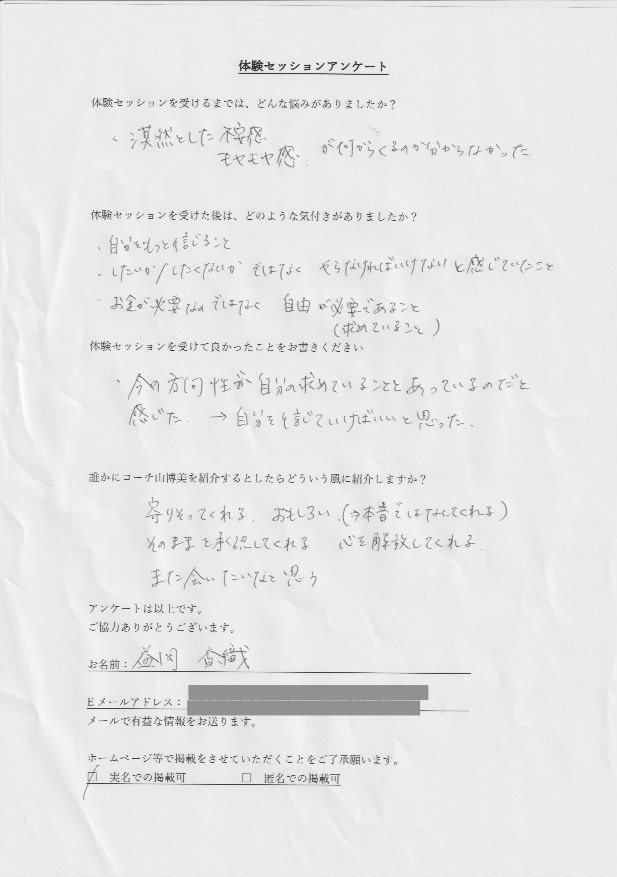 体験セッションアンケート
体験セッションを受けるまでは、どんな悩みがありましたか?
・漠然とした不安感
モヤモヤ感 が何からくるのか分からなかった
体験セッションを受けた後は、どのような気付きがありましたか?
・自分をもっと信じること
・したいか/したくないか ではなく やらなければいけない と感じていたこと
・お金が必要なのではなく 自由が必要であること
(求めていること)
体験セッションを受けて良かったことをお書きください
・今の方向性が自分の求めていることとあっているのだと
感じた. → 自分を信じていけばいいと思った.
誰かにコーチ山博美を紹介するとしたらどういう風に紹介しますか?
寄りそってくれる. おもしろい.(⇒本音ではなしてくれる)
そのままを承認してくれる 心を解放してくれる.
また会いたいなと思う
アンケートは以上です。
ご協力ありがとうございます。
お名前:益岡 香織
Eメールアドレス:
メールで有益な情報をお送ります。
ホームページ等で掲載をさせていただくことをご了承願います。
□ 実名での掲載可 □ 匿名での掲載可